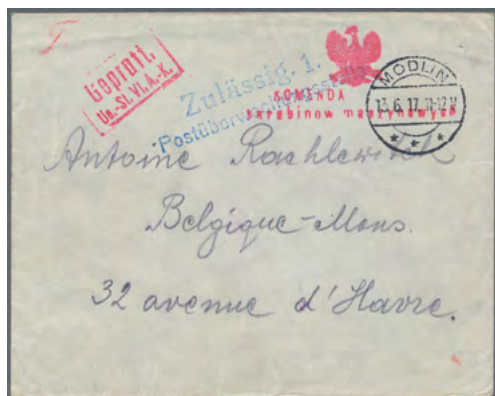 Geprüft.
Ue.-St. VI. A.-K.
Zulässig. 1.
Postüberwachungsstelle
KOMENDA
karabinow maszynowych
MODLIN
13.6.17.11-12V
Antoine Rachlewitch
Belgique-Mons.
32 avenue d'Havre.